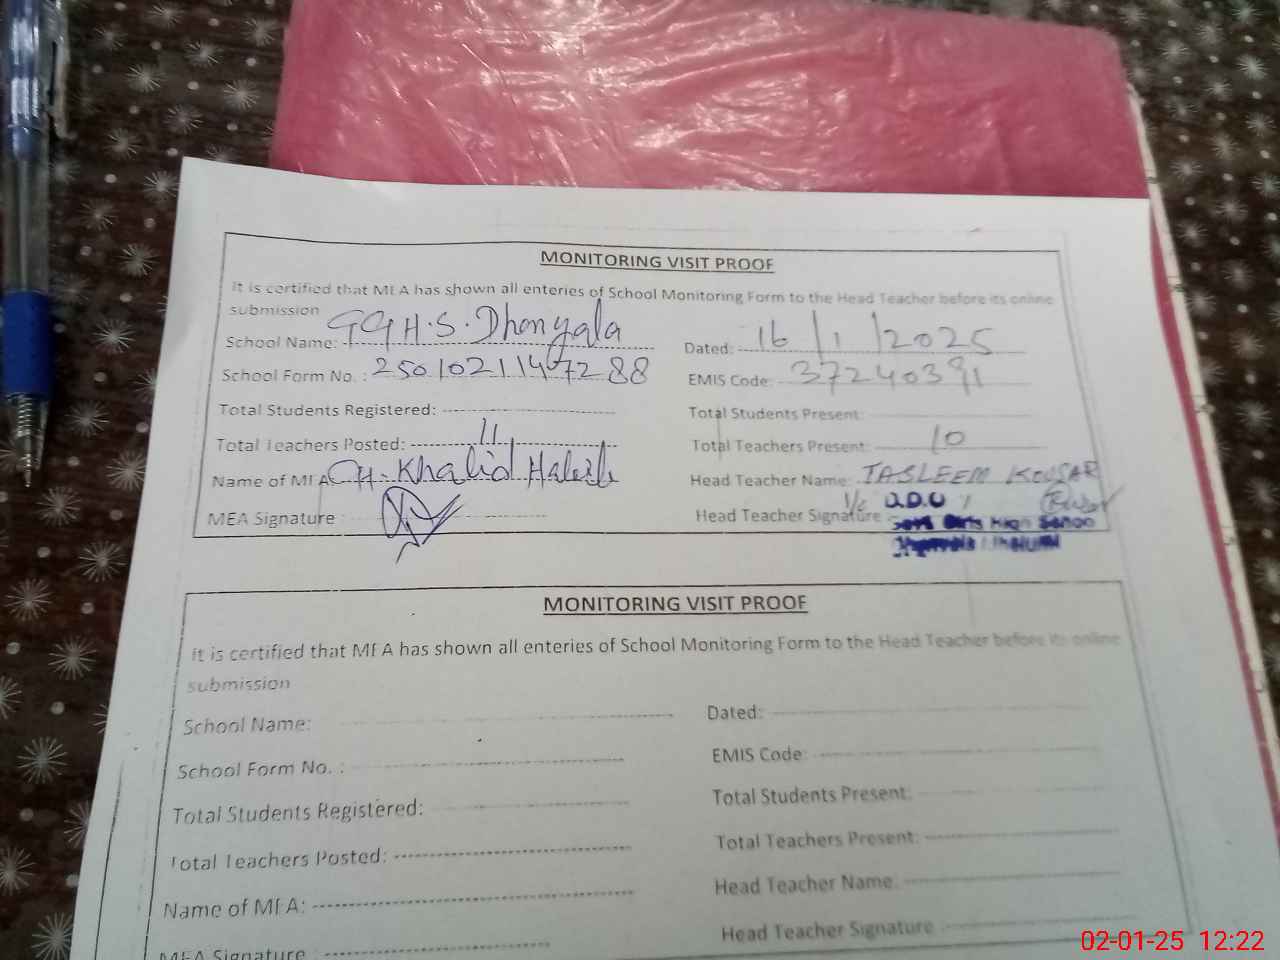 MONITORING VISIT PROOF
It is certified that MEA has shown all enteries of School Monitoring Form to the Head Teacher before its online
submission
School Name: GGH.S. Dhonyala Dated: 16/1/2025
School Form No. : 25010211467288 EMIS Code: 37240391
Total Students Registered: Total Students Present:
Total Teachers Posted: 11 Total Teachers Present: 10
Name of MEA CH. Khalid Habib Head Teacher Name: TASLEEM KOUSAR
MEA Signature : Head Teacher Signature I/c D.D.O
Govt Girls High School
MONITORING VISIT PROOF
It is certified that MEA has shown all enteries of School Monitoring Form to the Head Teacher before its online
submission
School Name: Dated:
School Form No. : EMIS Code:
Total Students Registered: Total Students Present:
Total Teachers Posted: Total Teachers Present:
Name of MEA: Head Teacher Name:
MEA Signature : Head Teacher Signature :
02-01-25 12:22